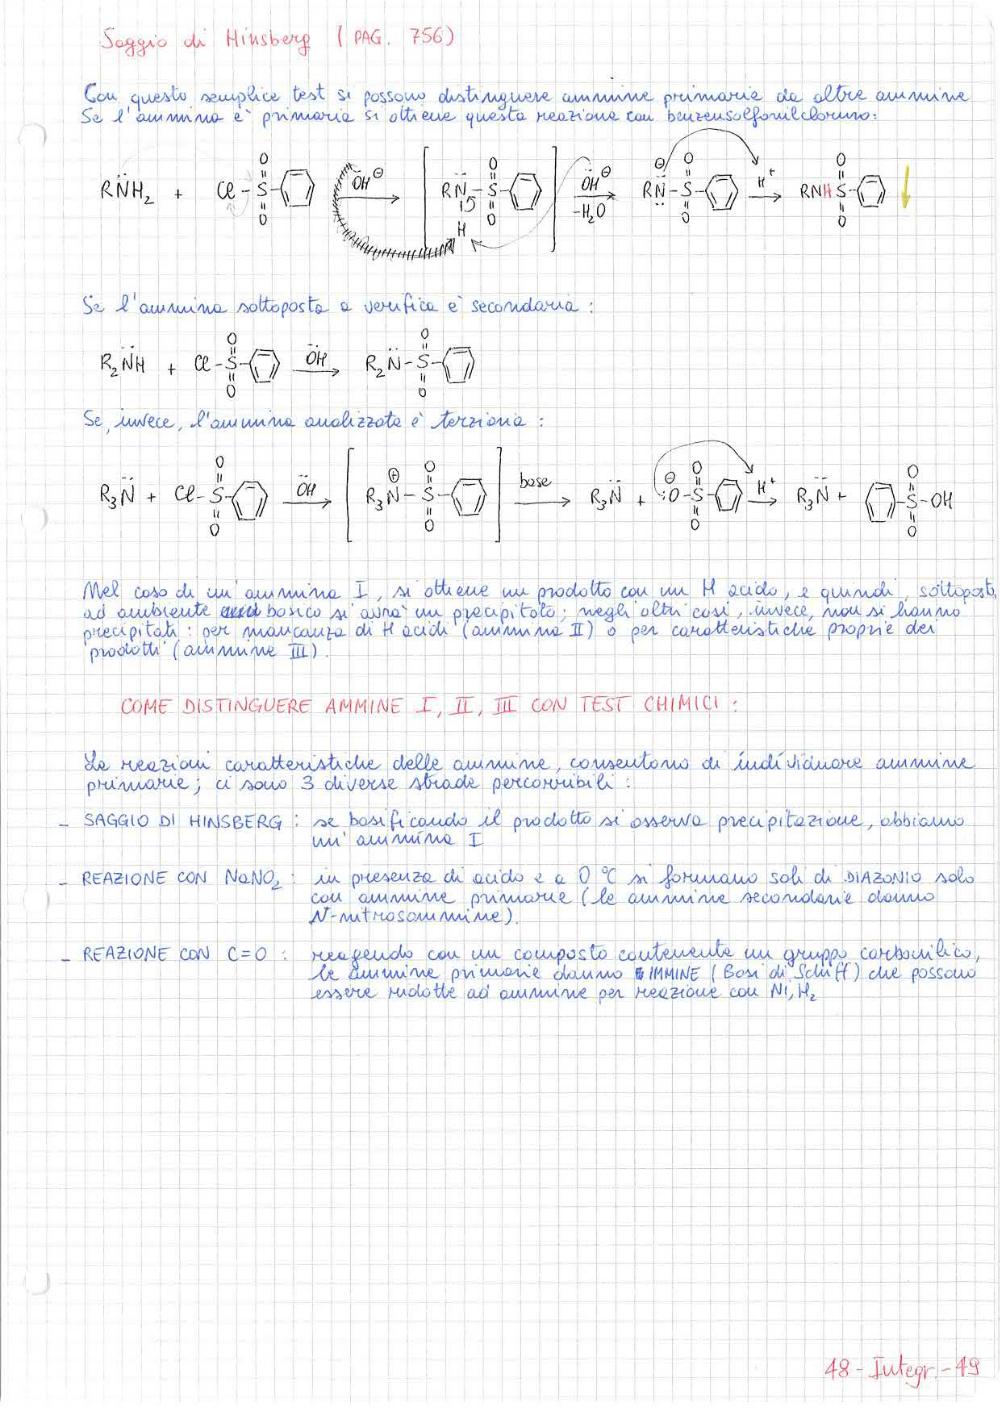 Saggio di Hinsberg (PAG. 756)
Con questo semplice test si possono distinguere ammine primarie da altre ammine
Se l'ammina è primaria si ottiene questa reazione con benzensolfonilcloruro:
RN̈H₂ + Cl-S(=O)(=O)- ÖH⊖ → [RN̈-S(=O)(=O)- H] ÖH⊖ → -H₂O RN̈⊖-S(=O)(=O)- H⁺ → RNHS(=O)(=O)- ↓
Se l'ammina sottoposta a verifica è secondaria:
R₂N̈H + Cl-S(=O)(=O)- ÖH → R₂N̈-S(=O)(=O)-
Se, invece, l'ammina analizzata è terziaria:
R₃N̈ + Cl-S(=O)(=O)- ÖH → [R₃N⊕-S(=O)(=O)-] base → R₃N̈ + ⊖:O-S(=O)(=O)- H⁺ → R₃N̈ + -S(=O)(=O)-OH
Nel caso di un'ammina I, si ottiene un prodotto con un H acido, e quindi, sottoposto
ad ambiente basico si avrà un precipitato; negli altri casi, invece, non si hanno
precipitati: per mancanza di H acidi (ammina II) o per caratteristiche proprie dei
prodotti (ammine III).
COME DISTINGUERE AMMINE I, II, III CON TEST CHIMICI:
Le reazioni caratteristiche delle ammine, consentono di individuare ammine
primarie; ci sono 3 diverse strade percorribili:
- SAGGIO DI HINSBERG: se basificando il prodotto si osserva precipitazione, abbiamo
un'ammina I
- REAZIONE CON NaNO₂: in presenza di acido e a 0 °C si formano sali di DIAZONIO solo
con ammine primarie (le ammine secondarie danno
N-nitrosammine).
- REAZIONE CON C=O: reagendo con un composto contenente un gruppo carbonilico,
le ammine primarie danno IMMINE (Basi di Schiff) che possono
essere ridotte ad ammine per reazione con Ni, H₂
48-Integr.-49